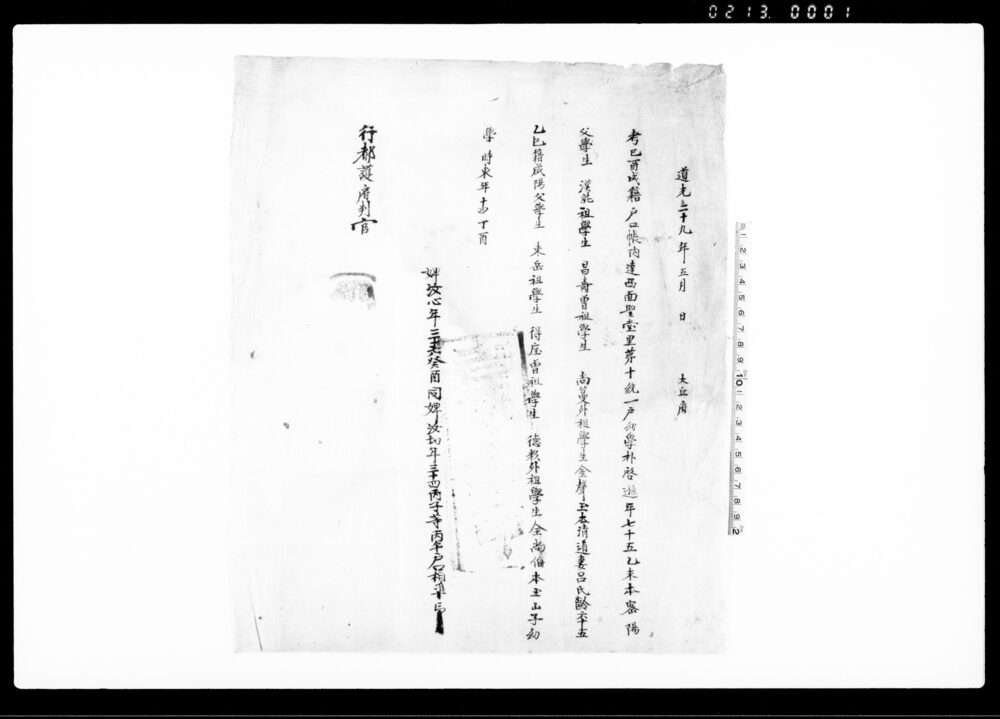 0213. 0001
道光二十九年五月 日 大丘府
考己酉成籍戶口帳內達西面聖堂里苐十統一戶幼學朴啓 年七十五乙未本密陽
父學生 漢 祖學生 昌壽曾祖學生 尙蔓外祖學生金聲玉本淸道妻呂氏齡六十五
乙巳籍咸陽父學生 東岳祖學生 得 曾祖學生 德 外祖學生全尙伯本玉山子幼
學 時東年十四丁酉
婢 心年三十七癸酉同婢汝 年三十四丙子等丙午戶口相準印
行都護府判官
1 2 3 4 5 6 7 8 9 10 1 2 3 4 5 6 7 8 9 2